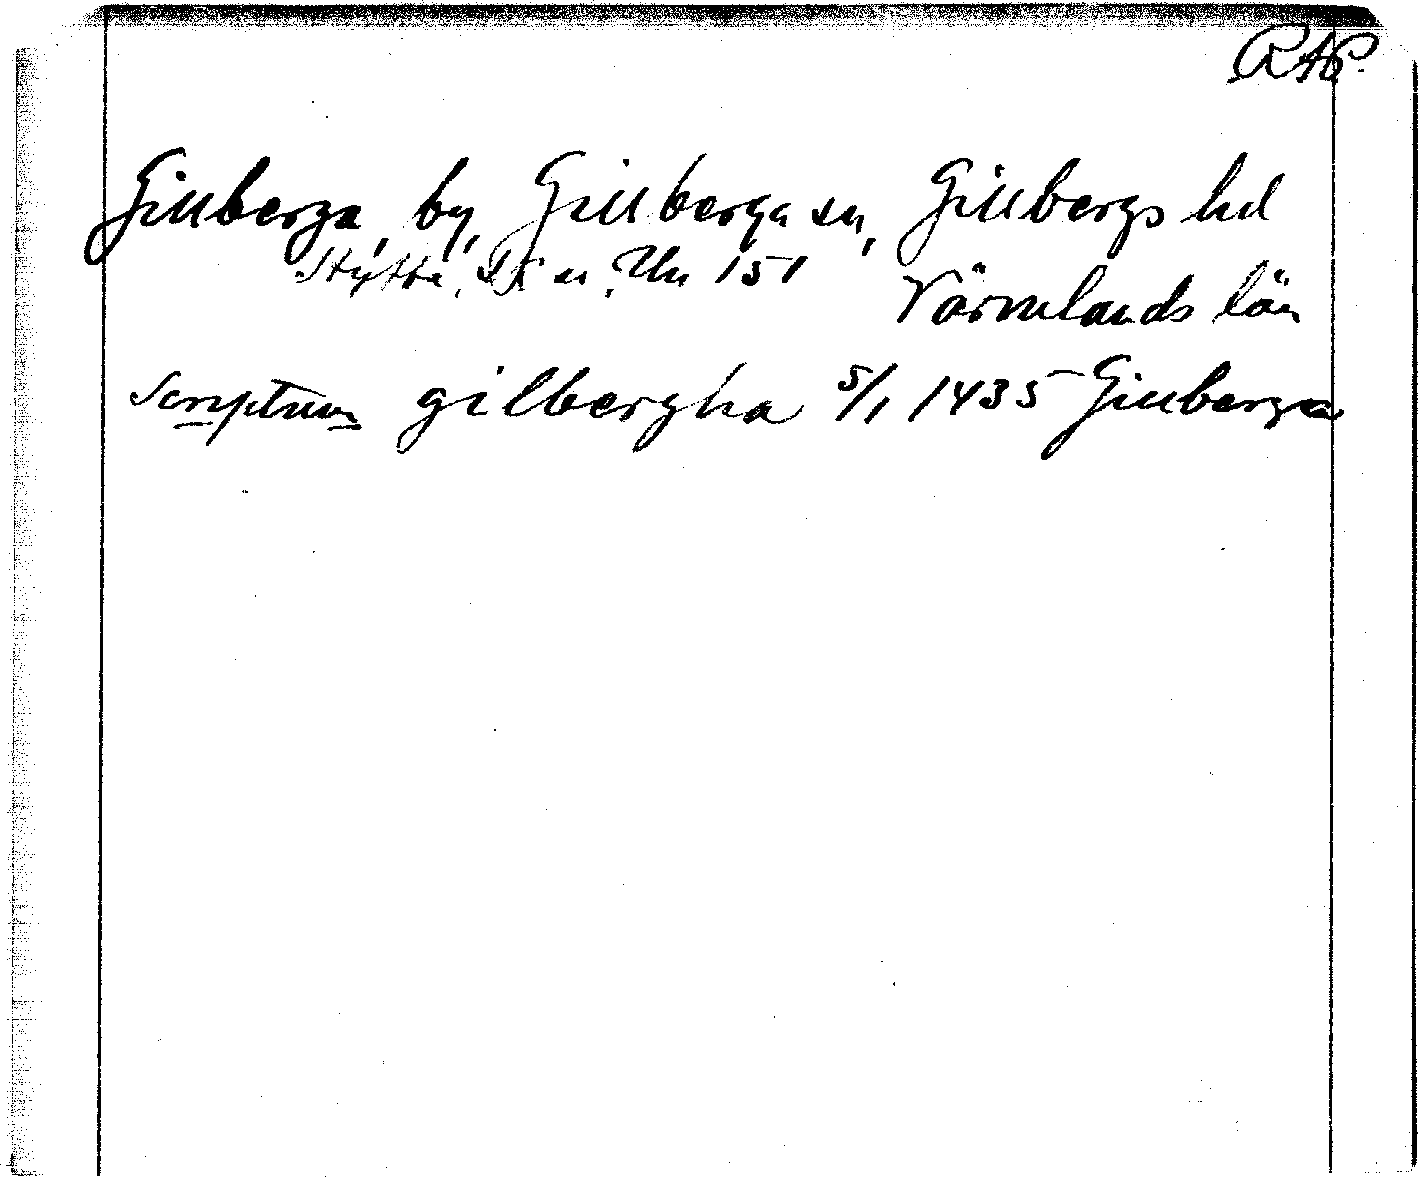 RAP.
Gillberga, by, Gillberga sn, Gillbergs hd
151
Värmlands län
Scriptum gilbergha 5/1 1435 Gillberga